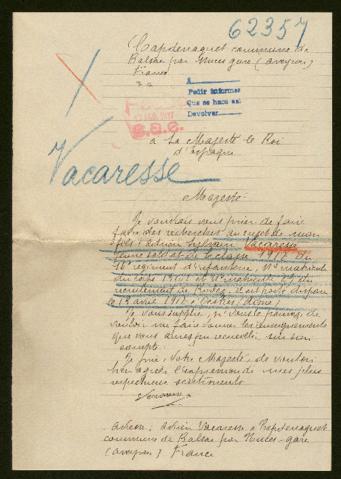 62357
Capdenaguet commune de
Balsac par Nuces gare (Aveyron)
France
A
Pedir informes
Que se haga así
Devolver
S.G.C.
à Sa Majesté le Roi
d'Espagne
Vacaresse
Majesté
Je voudrais vous prier de faire
faire des recherches au sujet de mon
fils Adrien Sylvain Vacaresse
jeune soldat de la classe 1917 au
régiment d'infanterie, Nº matricule
du corps
recrutement de Rodez. Est porté disparu
le 13 avril 1918 à
Je vous supplie, si vous le
vouloir me faire donner les renseignements
que vous aurez pu recueillir sur son
compte.
Je prie Votre Majesté de vouloir
bien agréer l'expression de mes plus
respectueux sentiments
Vacaresse
adresse: Adrien Vacaresse à Capdenaguet
commune de Balsac par Nuces-gare
(Aveyron) France